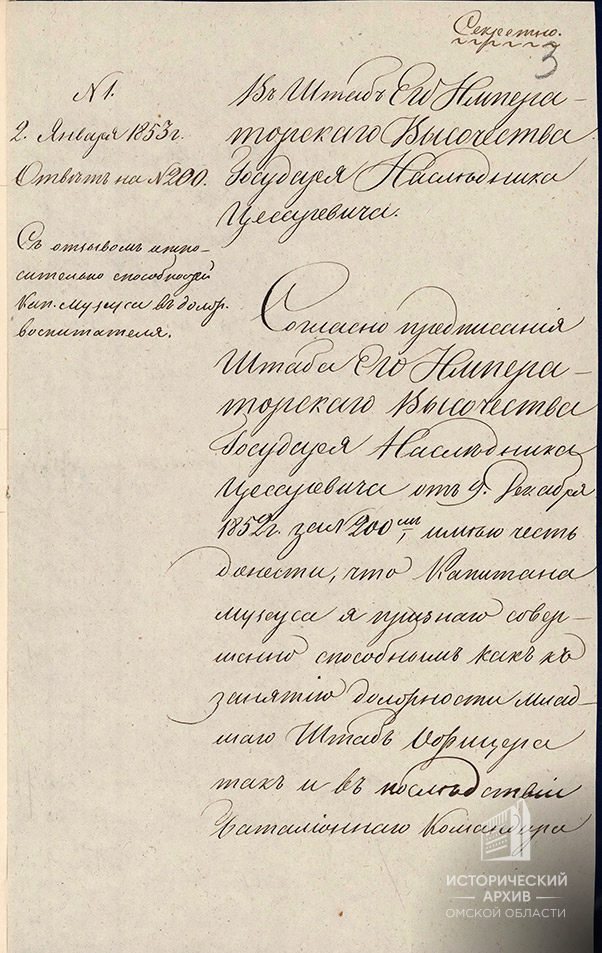 Секретно.
3
N 1.
2. Января 1853 г.
Ответъ на N 200.
Съ отзывомъ относ-
сительно способностей
Кап. Мукуса въ должн.
воспитателя.
Въ Штабъ Его Импера-
торскаго Высочества
Государя Наслѣдника
Цесаревича.
Согласно предписанія
Штаба Его Импера-
торскаго Высочества
Государя Наслѣдника
Цесаревича отъ 9. Декабря
1852 г. за N 200мъ, имѣю честь
донести, что Капитана
я признаю совер-
шенно способнымъ какъ къ
занятію должности млад-
шаго Штабъ Офицера
такъ и въ послѣдствіи
Баталіоннаго Командира
ИСТОРИЧЕСКИЙ
АРХИВ
ОМСКОЙ ОБЛАСТИ